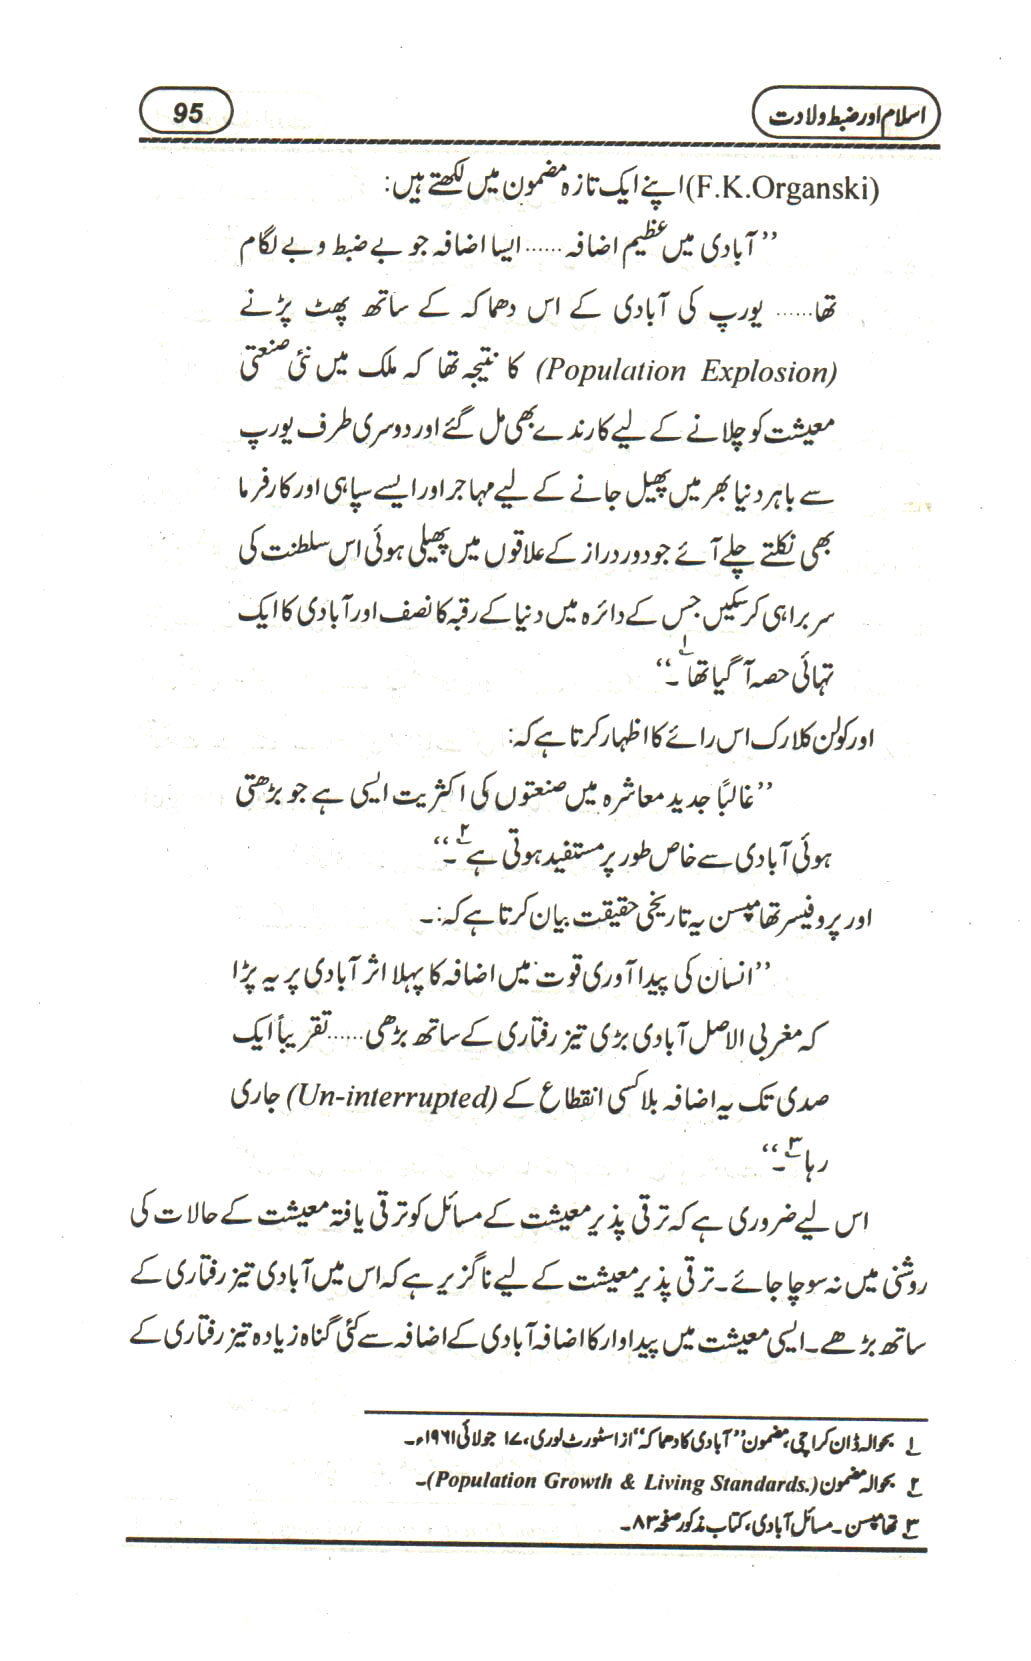 اسلام اور ضبط ولادت
95
(F.K.Organski) اپنے ایک تازہ مضمون میں لکھتے ہیں:
”آبادی میں عظیم اضافہ...... ایسا اضافہ جو بے ضبط و بے لگام
تھا...... یورپ کی آبادی کے اس دھماکہ کے ساتھ پھٹ پڑنے
(Population Explosion) کا نتیجہ تھا کہ ملک میں نئی صنعتی
معیشت کو چلانے کے لیے کارندے بھی مل گئے اور دوسری طرف یورپ
سے باہر دنیا بھر میں پھیل جانے کے لیے مہاجر اور ایسے سپاہی اور کارفرما
بھی نکلتے چلے آئے جو دور دراز کے علاقوں میں پھیلی ہوئی اس سلطنت کی
سربراہی کر سکیں جس کے دائرہ میں دنیا کے رقبہ کا نصف اور آبادی کا ایک
تہائی حصہ آ گیا تھا۱؂۔“
اور کولن کلارک اس رائے کا اظہار کرتا ہے کہ:
”غالبًا جدید معاشرہ میں صنعتوں کی اکثریت ایسی ہے جو بڑھتی
ہوئی آبادی سے خاص طور پر مستفید ہوتی ہے۲؂۔“
اور پروفیسر تھامپسن یہ تاریخی حقیقت بیان کرتا ہے کہ:۔
”انسان کی پیدا آوری قوت میں اضافہ کا پہلا اثر آبادی پر یہ پڑا
کہ مغربی الاصل آبادی بڑی تیز رفتاری کے ساتھ بڑھی...... تقریبًا ایک
صدی تک یہ اضافہ بلا کسی انقطاع کے (Un-interrupted) جاری
رہا۳؂۔“
اس لیے ضروری ہے کہ ترقی پذیر معیشت کے مسائل کو ترقی یافتہ معیشت کے حالات کی
روشنی میں نہ سوچا جائے۔ ترقی پذیر معیشت کے لیے ناگزیر ہے کہ اس میں آبادی تیز رفتاری کے
ساتھ بڑھے۔ ایسی معیشت میں پیداوار کا اضافہ آبادی کے اضافہ سے کئی گناہ زیادہ تیز رفتاری کے
۱؂ بحوالہ ڈان کراچی، مضمون ”آبادی کا دھماکہ“ از اسٹورٹ لوری، ۱۷ جولائی ۱۹۶۱ء۔
۲؂ بحوالہ مضمون (Population Growth & Living Standards.)۔
۳؂ تھامپسن۔ مسائل آبادی، کتاب مذکور صفحہ ۸۳۔